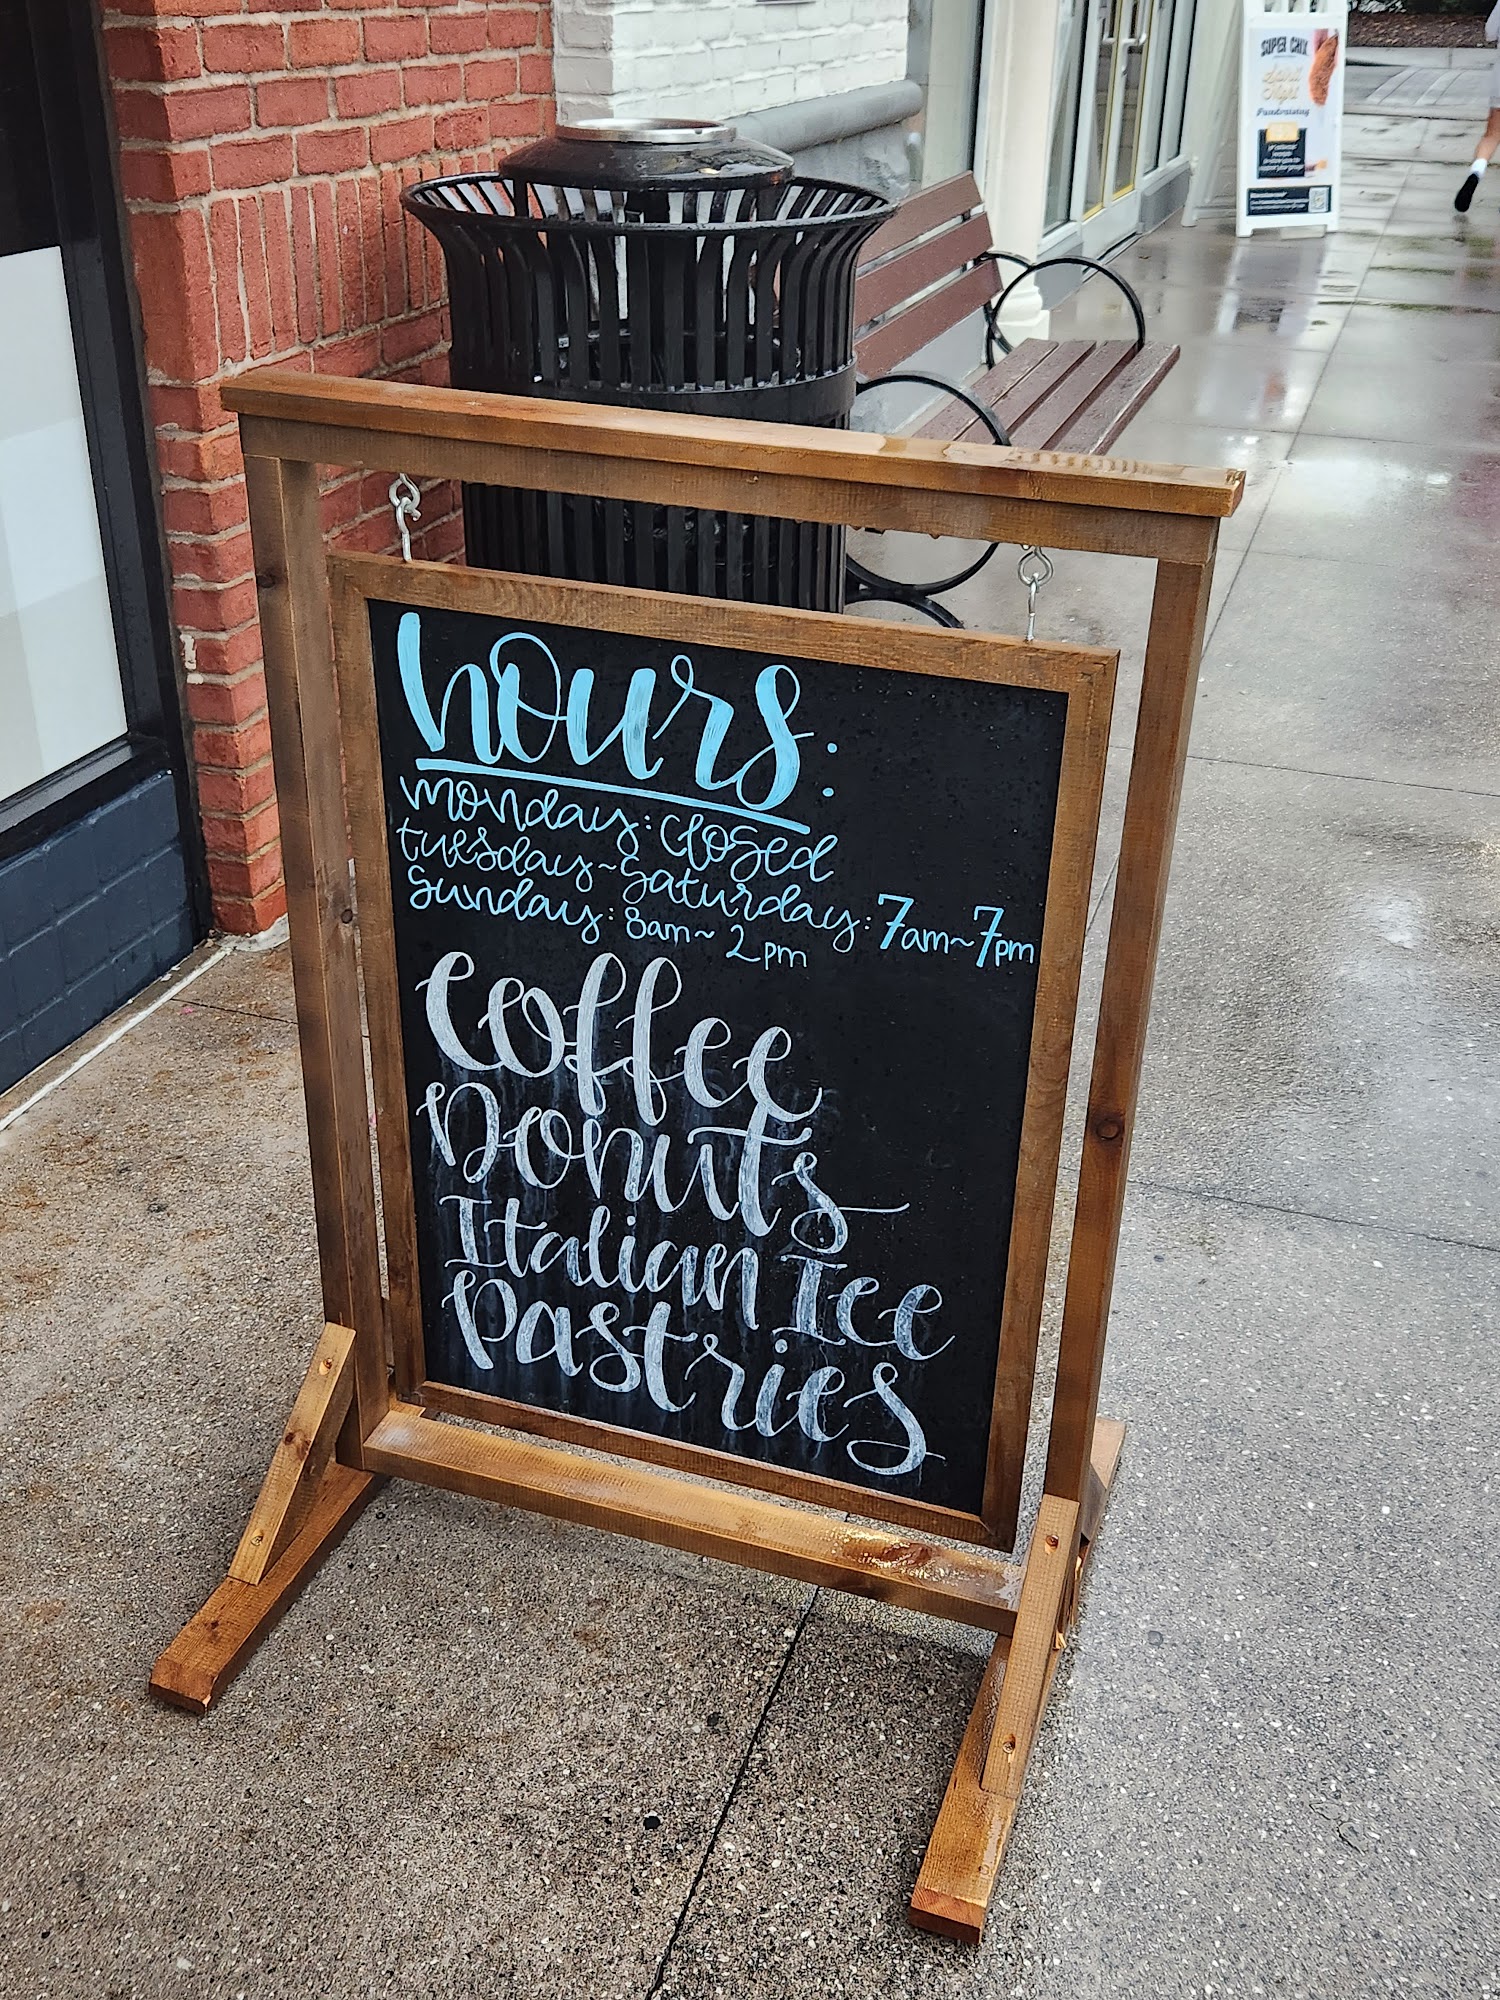 SUPER CHIX
Fundraising
hours:
monday: closed
tuesday~saturday: 7am~7pm
sunday: 8am~2pm
coffee
Donuts
Italian Ice
Pastries